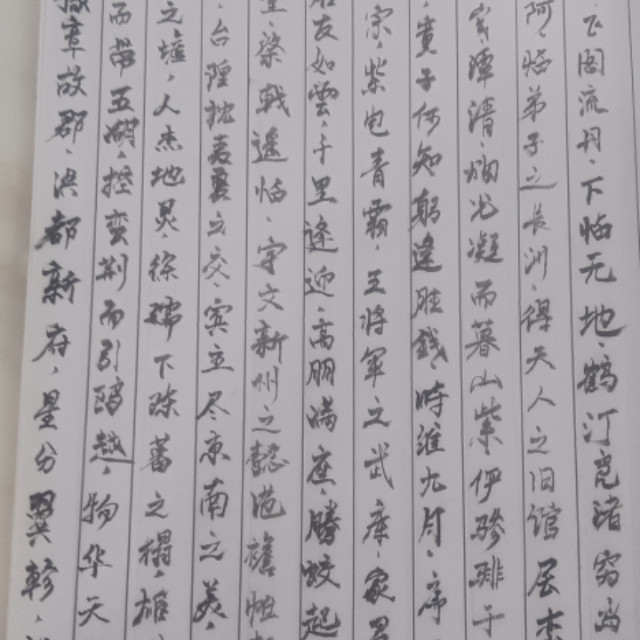 章故郡，洪都新府，星分翼轸，
而带五湖，控蛮荆而引瓯越，物华天
之墟，人杰地灵，徐孺下陈蕃之榻，雄
台隍枕夷夏之交，宾主尽东南之美，
棨戟遥临，宇文新州之懿范，襜帷
友如云，千里逢迎，高朋满座，腾蛟起
宗，紫电青霜，王将军之武库，家君
童子何知，躬逢胜饯，时维九月，序
潭清，烟光凝而暮山紫，俨骖騑于
阿，临弟子之长洲，得天人之旧馆，层
飞阁流丹，下临无地，鹤汀凫渚，穷岛